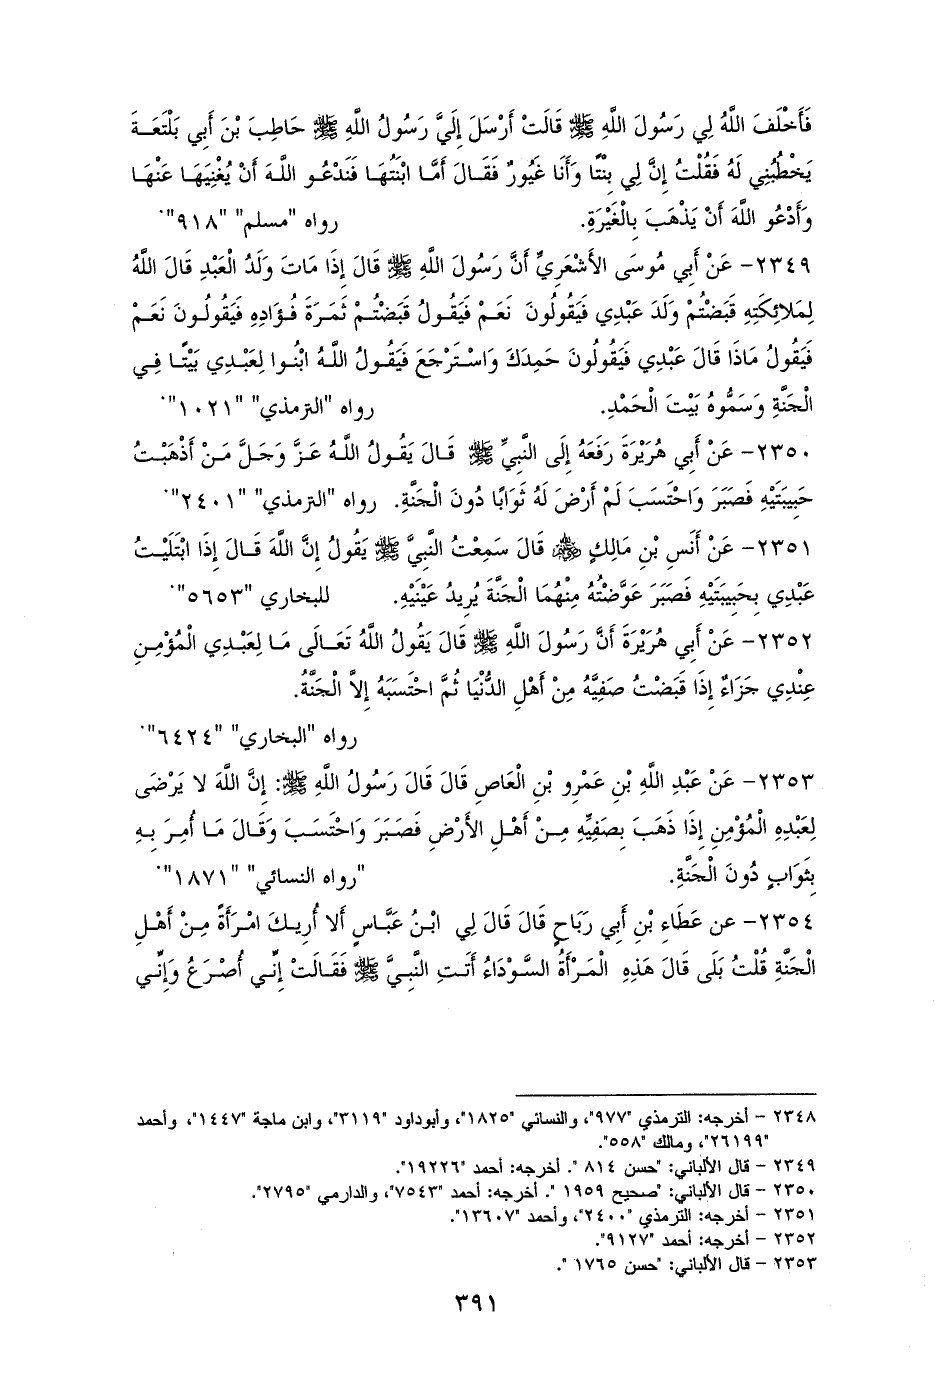 فَأَخْلَفَ اللَّهُ لِي رَسُولَ اللَّهِ ﷺ قَالَتْ أَرْسَلَ إِلَيَّ رَسُولُ اللَّهِ ﷺ حَاطِبَ بْنَ أَبِي بَلْتَعَةَ
يَخْطُبُنِي لَهُ فَقُلْتُ إِنَّ لِي بِنْتًا وَأَنَا غَيُورٌ فَقَالَ أَمَّا ابْنَتُهَا فَنَدْعُو اللَّهَ أَنْ يُغْنِيَهَا عَنْهَا
وَأَدْعُو اللَّهَ أَنْ يَذْهَبَ بِالْغَيْرَةِ. رواه "مسلم" "٩١٨".
٢٣٤٩- عَنْ أَبِي مُوسَى الأَشْعَرِيِّ أَنَّ رَسُولَ اللَّهِ ﷺ قَالَ إِذَا مَاتَ وَلَدُ الْعَبْدِ قَالَ اللَّهُ
لِمَلائِكَتِهِ قَبَضْتُمْ وَلَدَ عَبْدِي فَيَقُولُونَ نَعَمْ فَيَقُولُ قَبَضْتُمْ ثَمَرَةَ فُؤَادِهِ فَيَقُولُونَ نَعَمْ
فَيَقُولُ مَاذَا قَالَ عَبْدِي فَيَقُولُونَ حَمِدَكَ وَاسْتَرْجَعَ فَيَقُولُ اللَّهُ ابْنُوا لِعَبْدِي بَيْتًا فِي
الْجَنَّةِ وَسَمُّوهُ بَيْتَ الْحَمْدِ. رواه "الترمذي" "١٠٢١".
٢٣٥٠- عَنْ أَبِي هُرَيْرَةَ رَفَعَهُ إِلَى النَّبِيِّ ﷺ قَالَ يَقُولُ اللَّهُ عَزَّ وَجَلَّ مَنْ أَذْهَبْتُ
حَبِيبَتَيْهِ فَصَبَرَ وَاحْتَسَبَ لَمْ أَرْضَ لَهُ ثَوَابًا دُونَ الْجَنَّةِ. رواه "الترمذي" "٢٤٠١".
٢٣٥١- عَنْ أَنَسِ بْنِ مَالِكٍ ﷺ قَالَ سَمِعْتُ النَّبِيَّ ﷺ يَقُولُ إِنَّ اللَّهَ قَالَ إِذَا ابْتَلَيْتُ
عَبْدِي بِحَبِيبَتَيْهِ فَصَبَرَ عَوَّضْتُهُ مِنْهُمَا الْجَنَّةَ يُرِيدُ عَيْنَيْهِ. للبخاري "٥٦٥٣".
٢٣٥٢- عَنْ أَبِي هُرَيْرَةَ أَنَّ رَسُولَ اللَّهِ ﷺ قَالَ يَقُولُ اللَّهُ تَعَالَى مَا لِعَبْدِي الْمُؤْمِنِ
عِنْدِي جَزَاءٌ إِذَا قَبَضْتُ صَفِيَّهُ مِنْ أَهْلِ الدُّنْيَا ثُمَّ احْتَسَبَهُ إِلاَّ الْجَنَّةُ.
رواه "البخاري" "٦٤٢٤".
٢٣٥٣- عَنْ عَبْدِ اللَّهِ بْنِ عَمْرِو بْنِ الْعَاصِ قَالَ قَالَ رَسُولُ اللَّهِ ﷺ: إِنَّ اللَّهَ لا يَرْضَى
لِعَبْدِهِ الْمُؤْمِنِ إِذَا ذَهَبَ بِصَفِيِّهِ مِنْ أَهْلِ الأَرْضِ فَصَبَرَ وَاحْتَسَبَ وَقَالَ مَا أُمِرَ بِهِ
بِثَوَابٍ دُونَ الْجَنَّةِ. "رواه النسائي" "١٨٧١".
٢٣٥٤- عن عَطَاءِ بْنِ أَبِي رَبَاحٍ قَالَ قَالَ لِي ابْنُ عَبَّاسٍ أَلا أُرِيكَ امْرَأَةً مِنْ أَهْلِ
الْجَنَّةِ قُلْتُ بَلَى قَالَ هَذِهِ الْمَرْأَةُ السَّوْدَاءُ أَتَتِ النَّبِيَّ ﷺ فَقَالَتْ إِنِّي أُصْرَعُ وَإِنِّي
٢٣٤٨ - أخرجه: الترمذي "٩٧٧"، والنسائي "١٨٢٥"، وأبوداود "٣١١٩"، وابن ماجة "١٤٤٧"، وأحمد
"٢٦١٩٩"، ومالك "٥٥٨".
٢٣٤٩ - قال الألباني: "حسن ٨١٤ ". أخرجه: أحمد "١٩٢٢٦".
٢٣٥٠ - قال الألباني: "صحيح ١٩٥٩ ". أخرجه: أحمد "٧٥٤٣"، والدارمي "٢٧٩٥".
٢٣٥١ - أخرجه: الترمذي "٢٤٠٠"، وأحمد "١٣٦٠٧".
٢٣٥٢ - أخرجه: أحمد "٩١٢٧".
٢٣٥٣ - قال الألباني: "حسن ١٧٦٥ ".
٣٩١